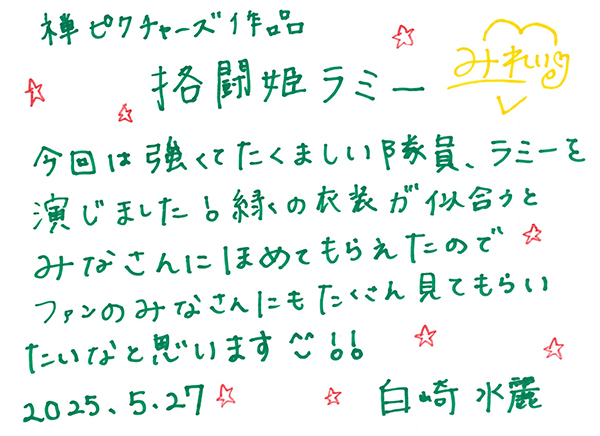 禅ピクチャーズ作品
格闘姫ラミー
みれい
今回は強くてたくましい隊員、ラミーを
演じました!緑の衣装が似合うと
みなさんにほめてもらえたので
ファンのみなさんにもたくさん見てもらい
たいなと思います!!
2025.5.27
白崎水麗